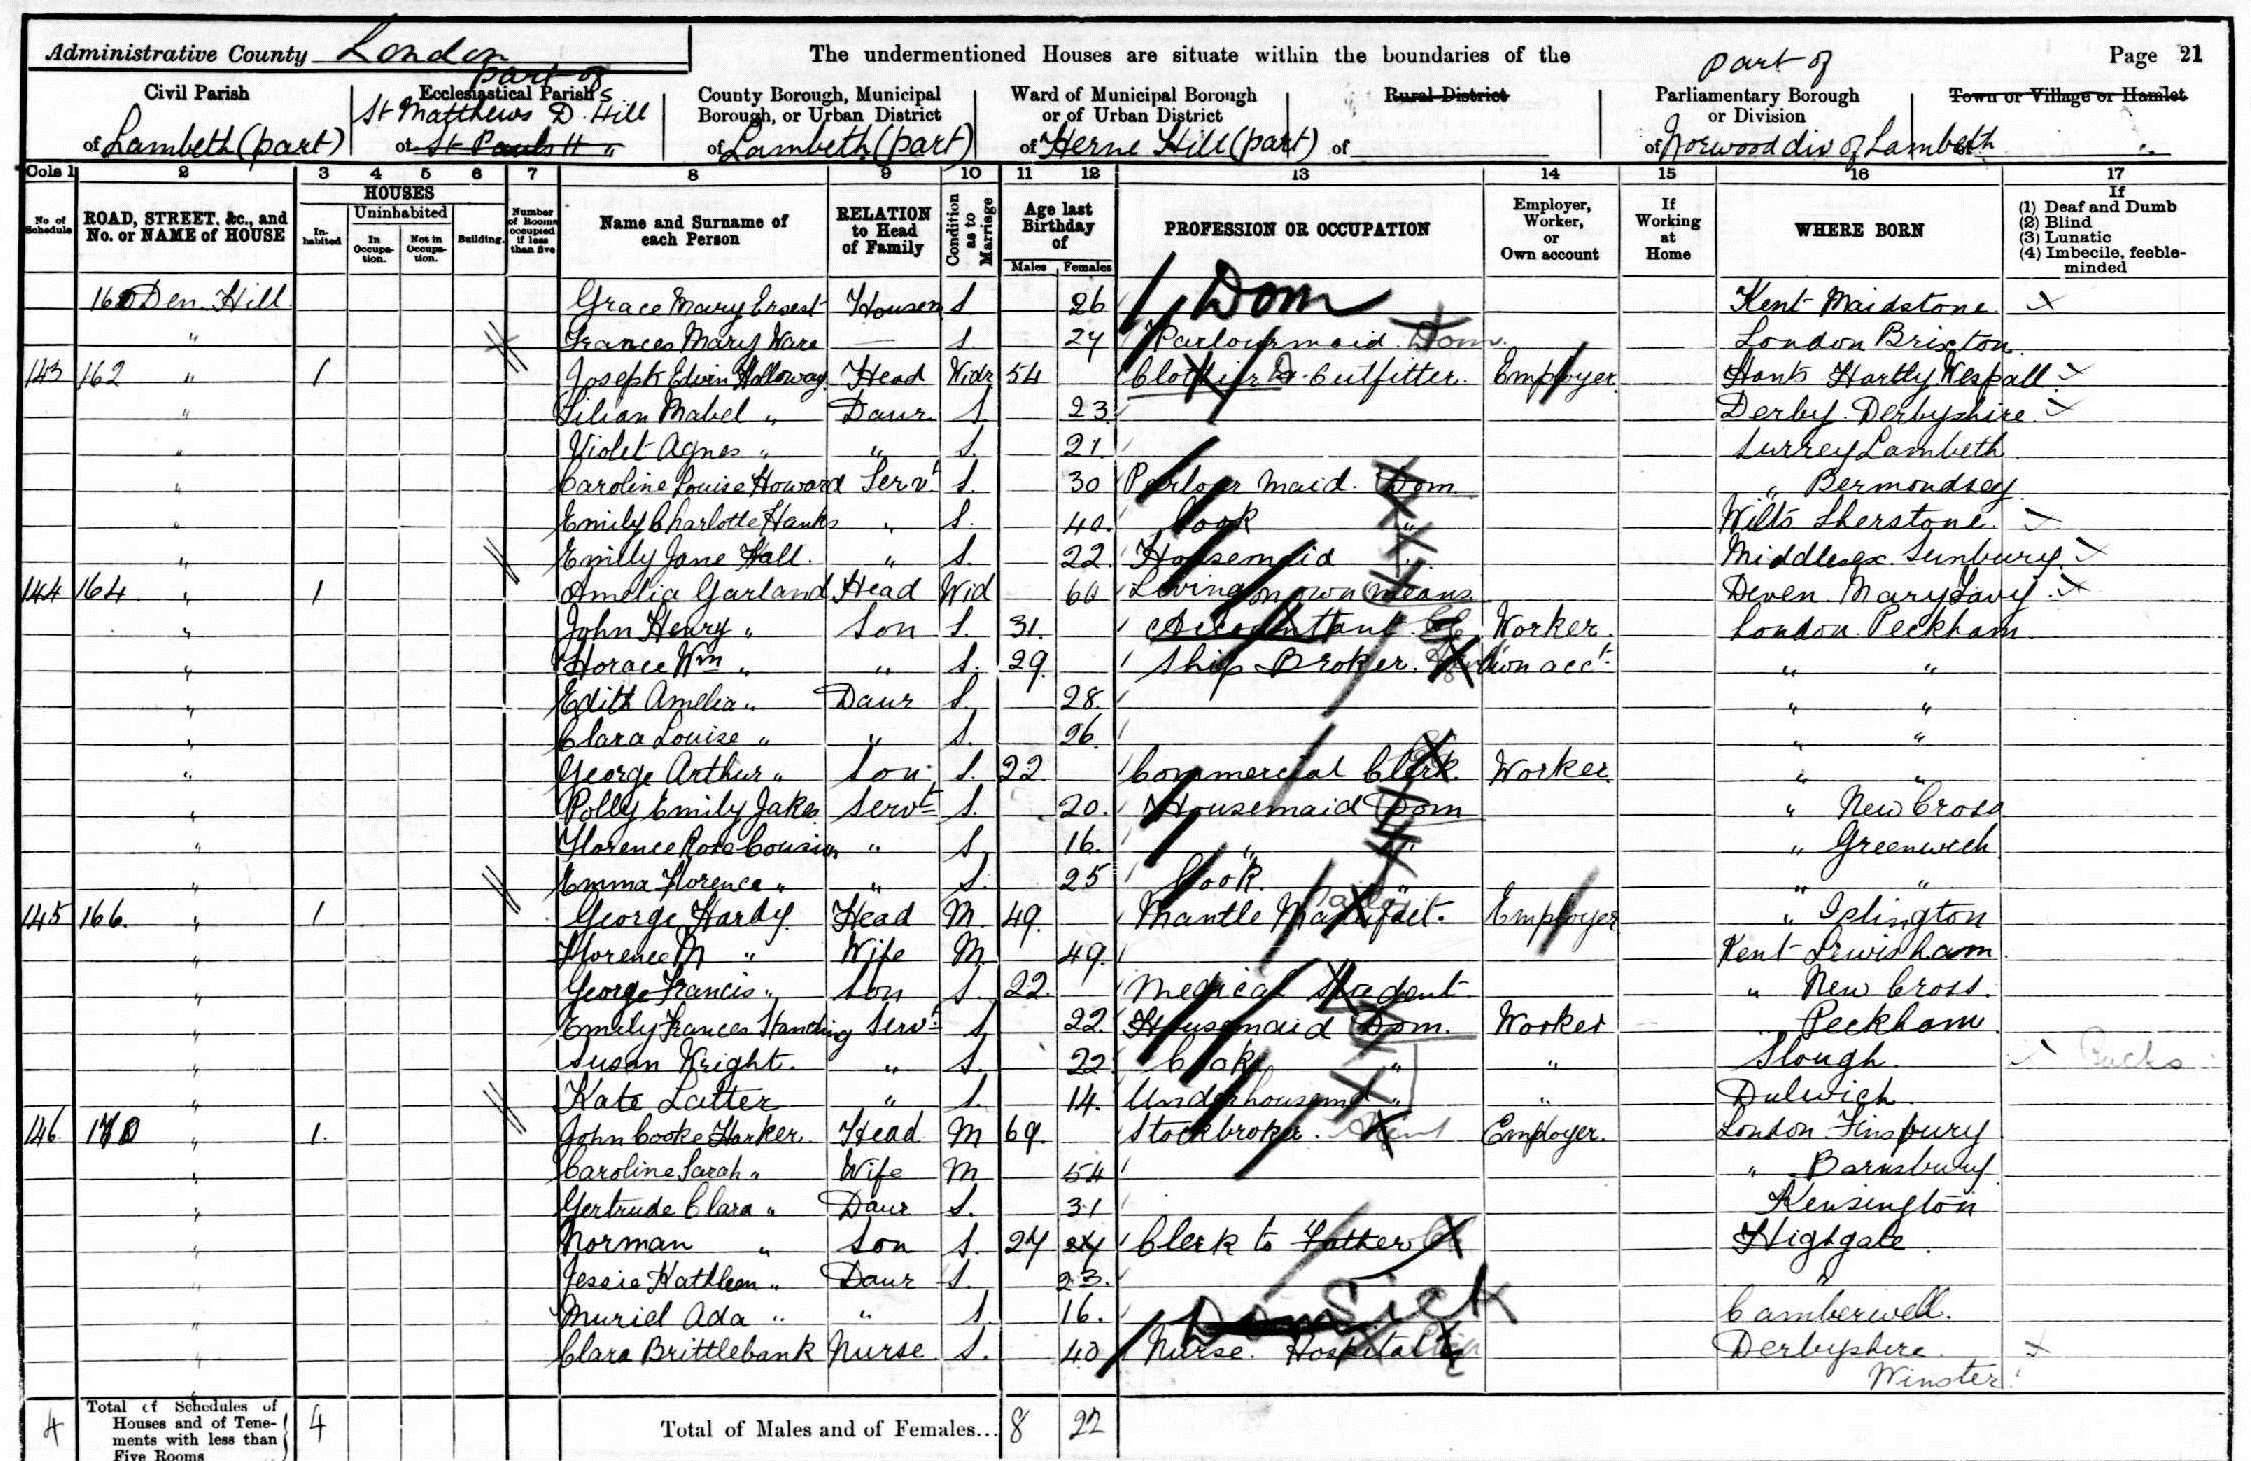 Administrative County London
The undermentioned Houses are situate within the boundaries of the
Page 21
Civil Parish
of Lambeth (part)
part of
Ecclesiastical Parish s
St Matthews D. Hill
of St Pauls H "
County Borough, Municipal
Borough, or Urban District
of Lambeth (part)
Ward of Municipal Borough
or of Urban District
of Herne Hill (part)
Rural District
of
part of
Parliamentary Borough
or Division
of Norwood div of Lambeth
Town or Village or Hamlet
Cols 1 2 3 4 5 6 7 8 9 10 11 12 13 14 15 16 17
No. of Schedule
ROAD, STREET, &c., and No. or NAME of HOUSE
HOUSES
In-habited
Uninhabited
In Occupa-tion.
Not in Occupa-tion.
Building.
Number of Rooms occupied if less than five
Name and Surname of each Person
RELATION to Head of Family
Condition as to Marriage
Age last Birthday of
Males Females
PROFESSION OR OCCUPATION
Employer, Worker, or Own account
If Working at Home
WHERE BORN
If
(1) Deaf and Dumb
(2) Blind
(3) Lunatic
(4) Imbecile, feeble-minded
160 Den. Hill Grace Mary Ernest Housem S 26 Dom Kent Maidstone
" Frances Mary Ware — S 24 Parlourmaid Dom. London Brixton
143 162 " 1 Joseph Edwin Holloway Head Widr 54 Clothier & Outfitter. Employer Hants Hartly Wespall
" Lilian Mabel " Daur S. 23 Derby Derbyshire
" Violet Agnes " " S. 21 Surrey Lambeth
" Caroline Louise Howard Servt S. 30 Parlour Maid. Dom " Bermondsey
" Emily Charlotte Hanks " S. 40. Cook " Wilts Sherstone.
" Emily Jane Hall. " S. 22. Housemaid " Middlesex Sunbury.
144 164 " 1 Amelia Garland Head Wid 60 Living on own means Devon Mary Tavy
" John Henry " Son S. 31. Accountant Worker. London Peckham
" Horace Wm " " S. 29. Ship Broker. Own acct " "
" Edith Amelia " Daur S. 28. " "
" Clara Louise " " S. 26. " "
" George Arthur " Son S. 22 Commercial Clerk. Worker. " "
" Polly Emily Jakes Servt S. 20. Housemaid Dom " New Cross
" Florence Rose Cousin " S. 16. " " " Greenwich
" Emma Florence " " S. 25 Cook. " " "
145 166. " 1 George Hardy. Head M. 49. Mantle Manufact. Employer " Islington
" Florence M " Wife M. 49. Kent Lewisham
" George Francis " Son S. 22. Medical Student " New Cross.
" Emily Frances Standing Servt S. 22. Housemaid Dom. Worker Peckham
" Susan Wright. " S. 22 Cook " " Slough. Bucks
" Kate Latter " S. 14. Underhousemd " " Dulwich
146. 170 " 1. John Cooke Harker. Head M 69. Stockbroker. Employer. London Finsbury
" Caroline Sarah " Wife M 54 " Barnsbury
" Gertrude Clara " Daur S. 31 Kensington
" Norman " Son S. 24 24 Clerk to Father Highgate.
" Jessie Kathleen " Daur S. 23. "
" Muriel Ada " " S. 16. Camberwell.
Dom Sick
" Clara Brittlebank Nurse S. 40 Nurse. Hospital Derbyshire
Winster
4 Total of Schedules of
Houses and of Tene-
ments with less than
Five Rooms
4
Total of Males and of Females... 8 22